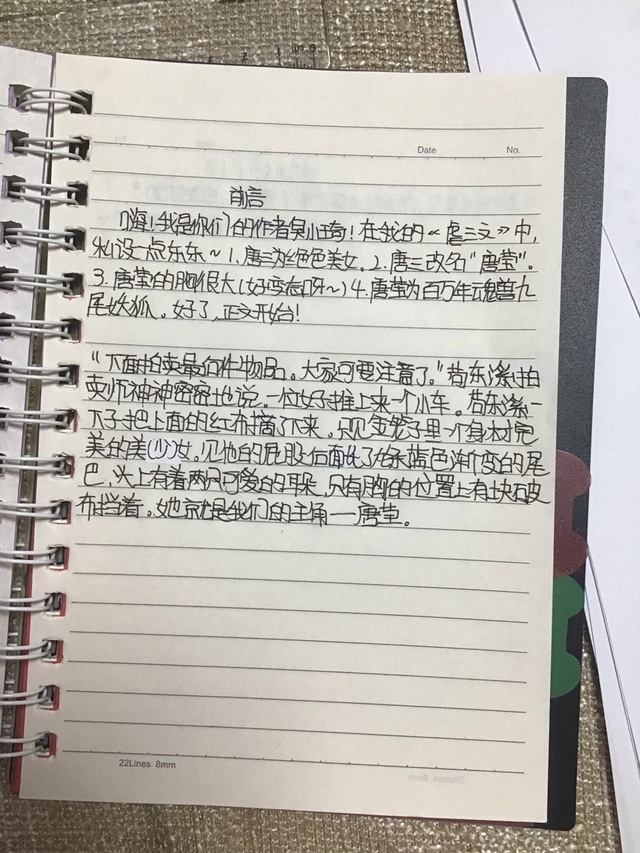 Date No.
前言
嗨!我是你们的作者吴小奇!在我的《虐三文》中,
私设一点东东~1.唐三为绝色美女。2.唐三改名"唐莹"。
3.唐莹的胸很大(好变态呀~)4.唐莹为百万年魂兽九
尾妖狐。好了,正文开始!
"下面拍卖最后一件物品。大家可要注意了。"
拍
卖师神神密密地说。一位女子推上来一个小车。
一
下子把上面的红布摘了下来。只见金笼子里一个身材完
美的美(少)女。见他的屁股后面
蓝色渐变的尾
巴。头上有着两只可爱的耳朵,只有胸的位置上有块破
布挡着。她就是我们的主角——唐莹。
22Lines. 8mm